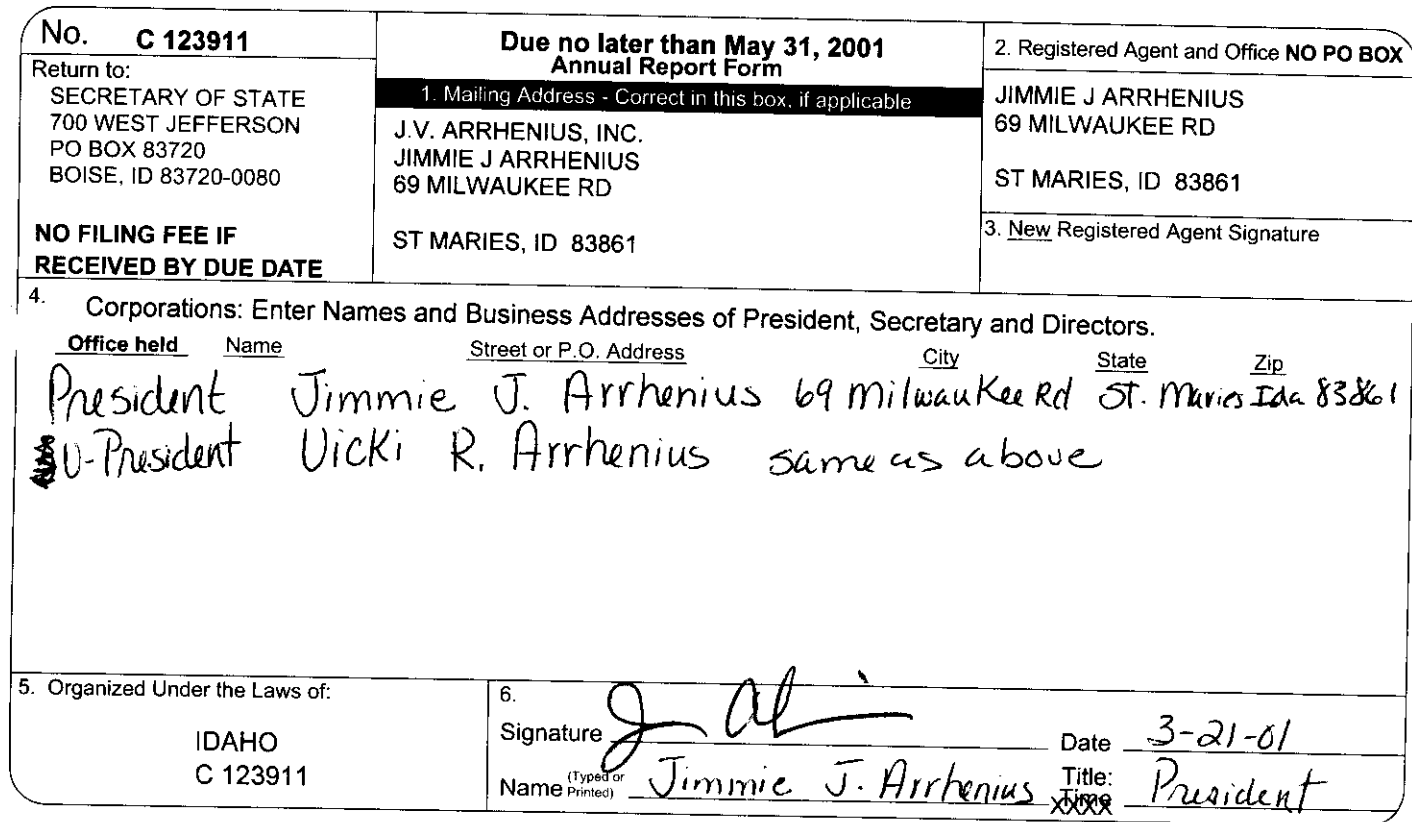 No. C 123911
Return to:
SECRETARY OF STATE
700 WEST JEFFERSON
PO BOX 83720
BOISE, ID 83720-0080
NO FILING FEE IF
RECEIVED BY DUE DATE
Due no later than May 31, 2001
Annual Report Form
1. Mailing Address - Correct in this box, if applicable
J.V. ARRHENIUS, INC.
JIMMIE J ARRHENIUS
69 MILWAUKEE RD
ST MARIES, ID 83861
2. Registered Agent and Office NO PO BOX
JIMMIE J ARRHENIUS
69 MILWAUKEE RD
ST MARIES, ID 83861
3. New Registered Agent Signature
4. Corporations: Enter Names and Business Addresses of President, Secretary and Directors.
Office held Name Street or P.O. Address City State Zip
President Jimmie J. Arrhenius 69 Milwaukee Rd St. Maries Ida 83861
V-President Vicki R. Arrhenius same as above
5. Organized Under the Laws of:
IDAHO
C 123911
6.
Signature Date 3-21-01
Name (Typed or Printed) Jimmie J. Arrhenius Title: President
XXXX Time